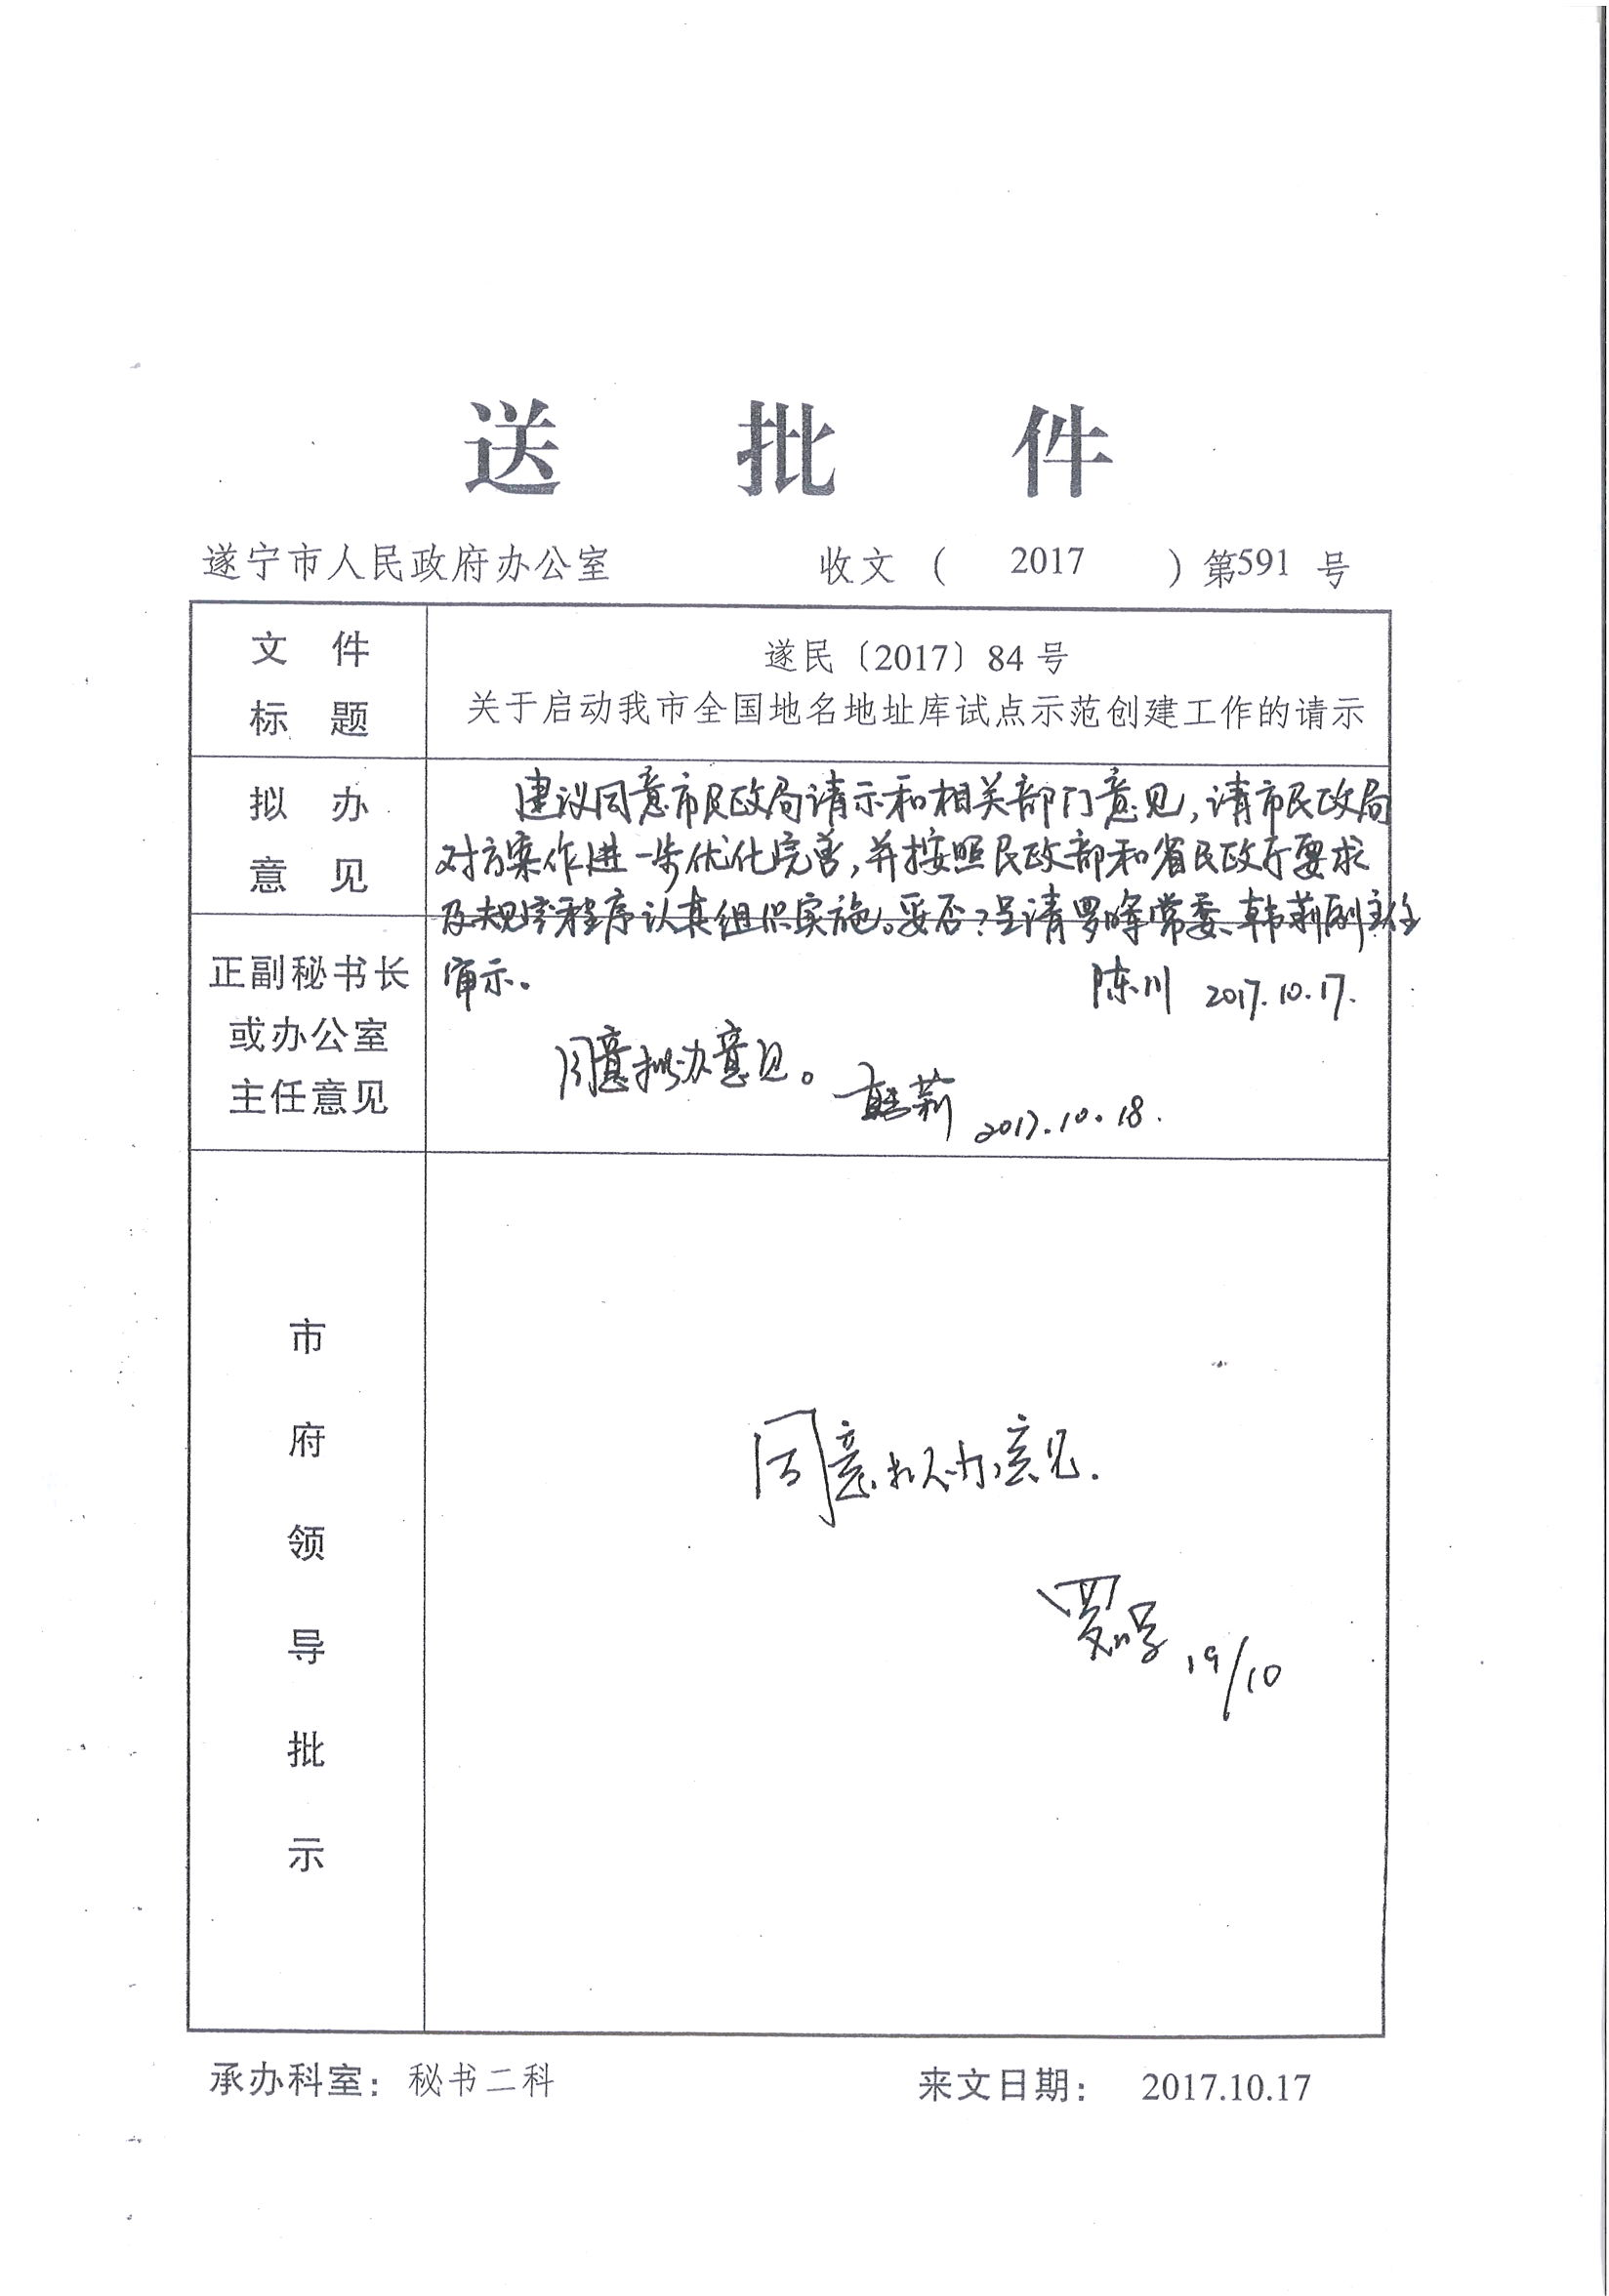 送 批 件
遂宁市人民政府办公室 收文 ( 2017 ) 第591 号
文 件
标 题
遂民〔2017〕84 号
关于启动我市全国地名地址库试点示范创建工作的请示
拟 办
意 见
建议同意市民政局请示和相关部门意见,请市民政局
对方案作进一步优化完善,并按照民政部和省民政厅要求
及规定程序认真组织实施。妥否?呈请罗 常委、韩莉副主任
审示。
陈川 2017.10.17.
正副秘书长
或办公室
主任意见
同意拟办意见。
韩莉 2017.10.18.
市
府
领
导
批
示
同意拟办意见.
罗 19/10
承办科室: 秘书二科 来文日期: 2017.10.17